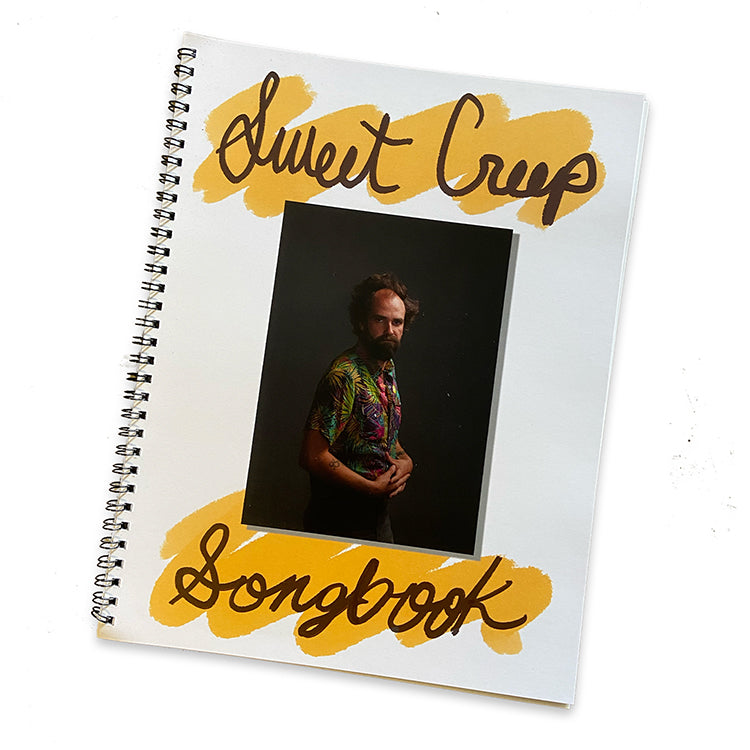 Sweet Creep
Songbook